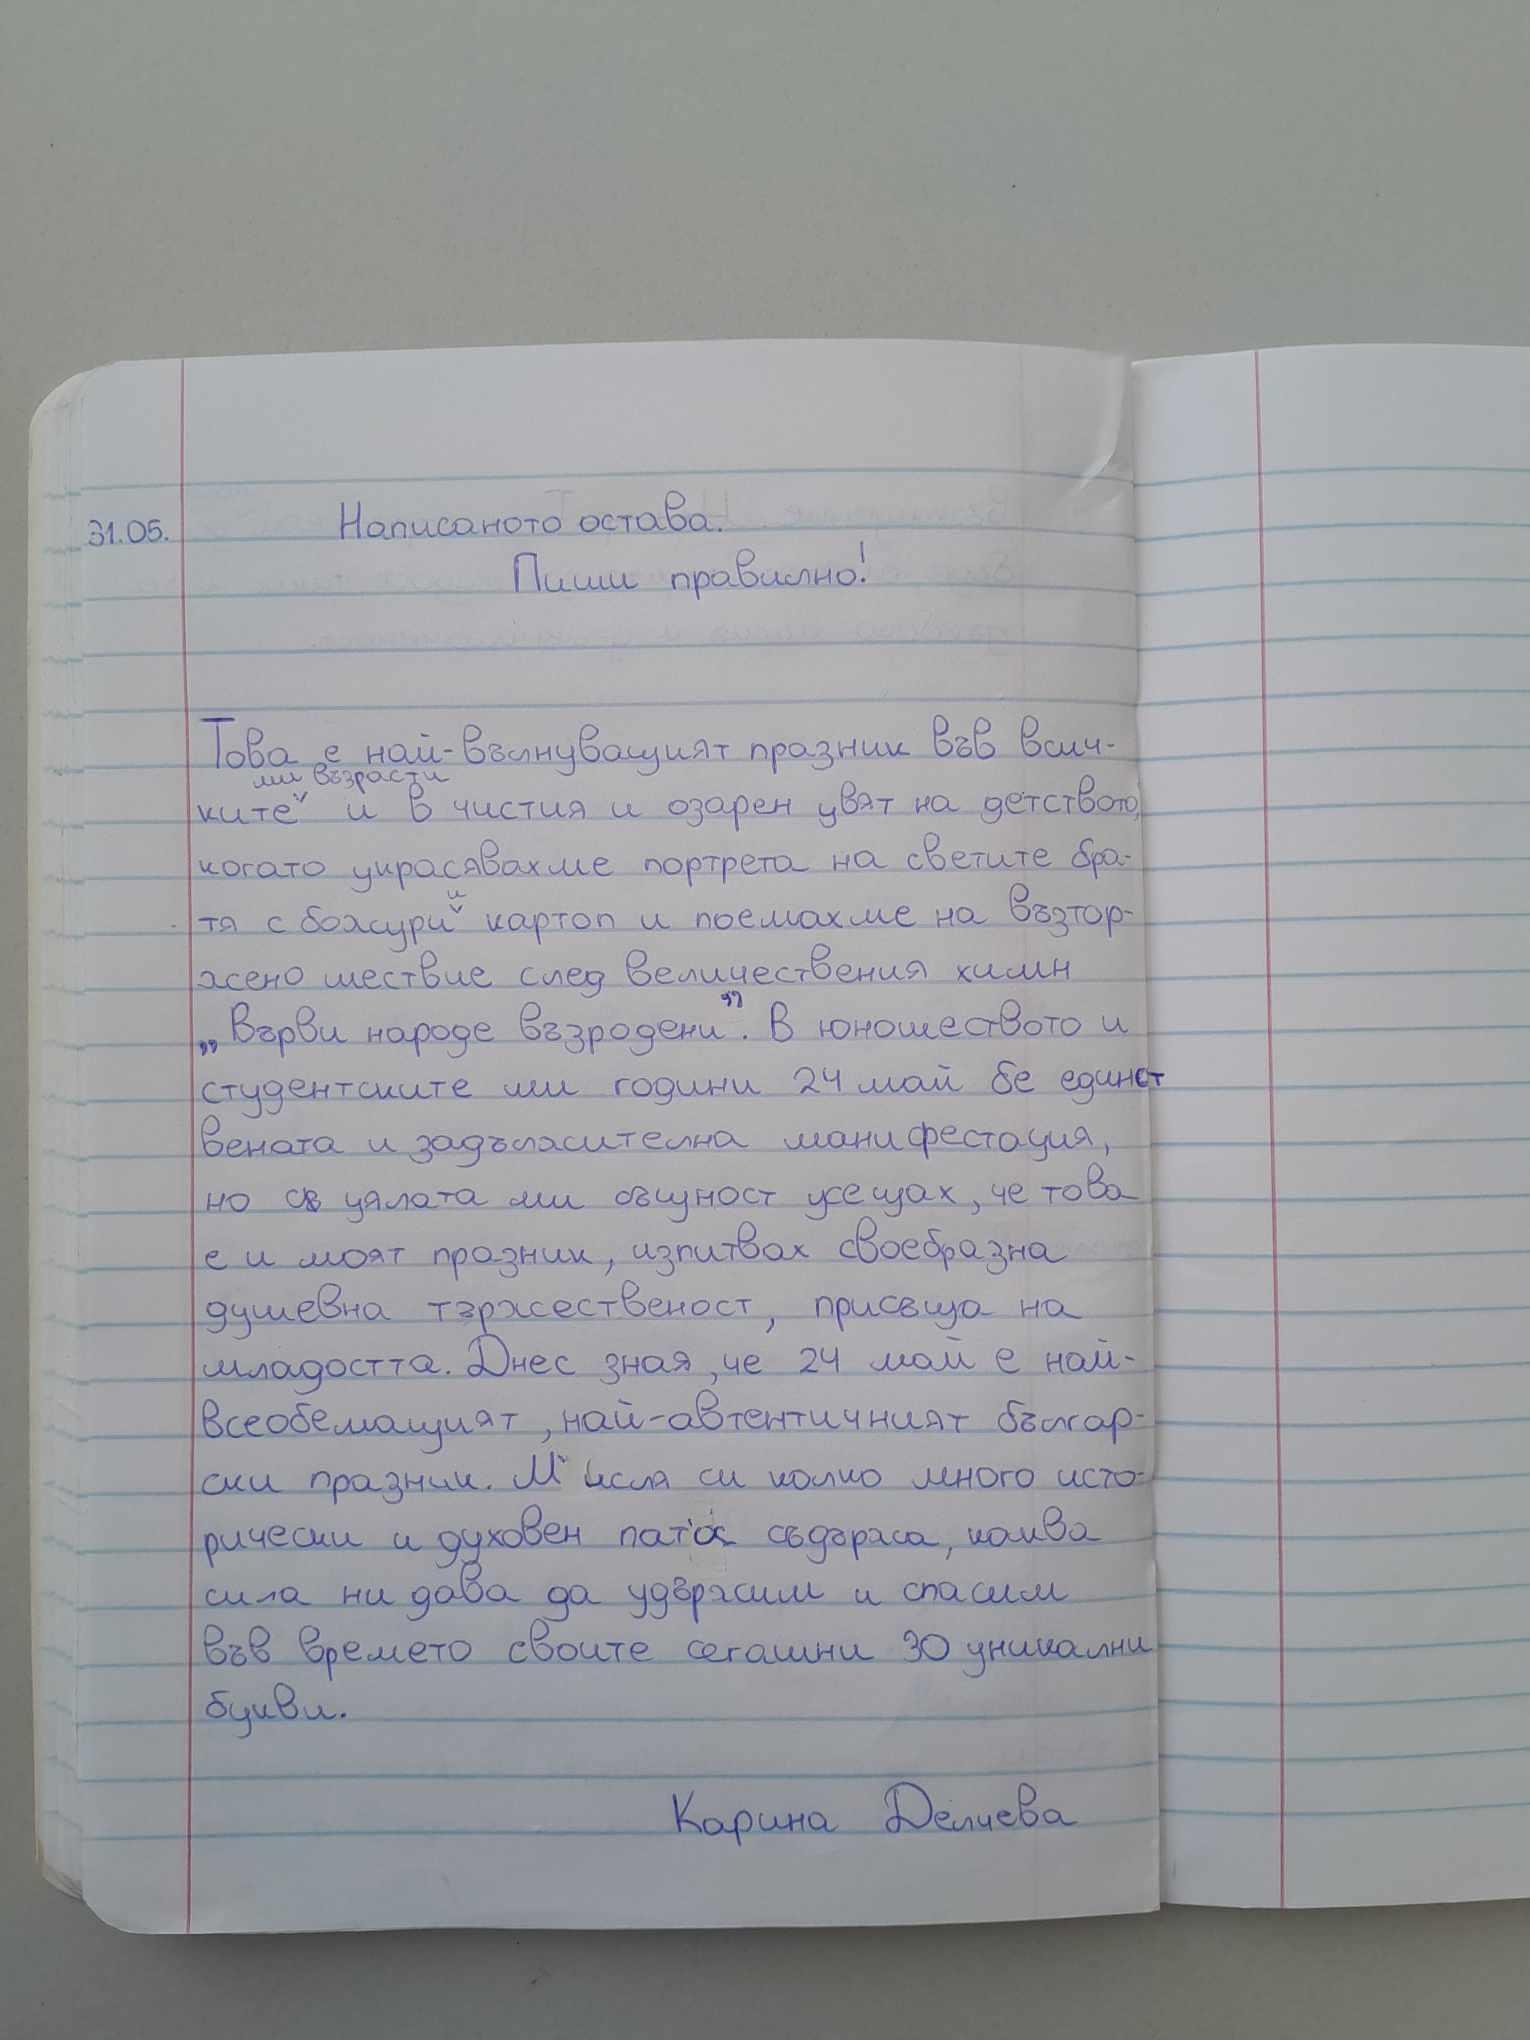 31.05. Написаното остава.
Пиши правилно!
Това е най-вълнуващият празник във всич-
ките ми възрасти и в чистия и озарен цвят на детството,
когато украсявахме портрета на светите бра-
тя с божури и картоп и поемахме на възтор-
жено шествие след величествения химн
„Върви народе възродени“. В юношеството и
студентските ми години 24 май бе единст
вената и задължителна манифестация,
но с цялата ми същност усещах, че това
е и моят празник, изпитвах своебразна
душевна тържественост, присъща на
младостта. Днес зная, че 24 май е най-
всеобемащият, най-автентичният българ-
ски празник. Мисля си колко много исто-
рически и духовен патос съдържа, каква
сила ни дава да удържим и спасим
във времето своите сегашни 30 уникални
букви.
Карина Делчева